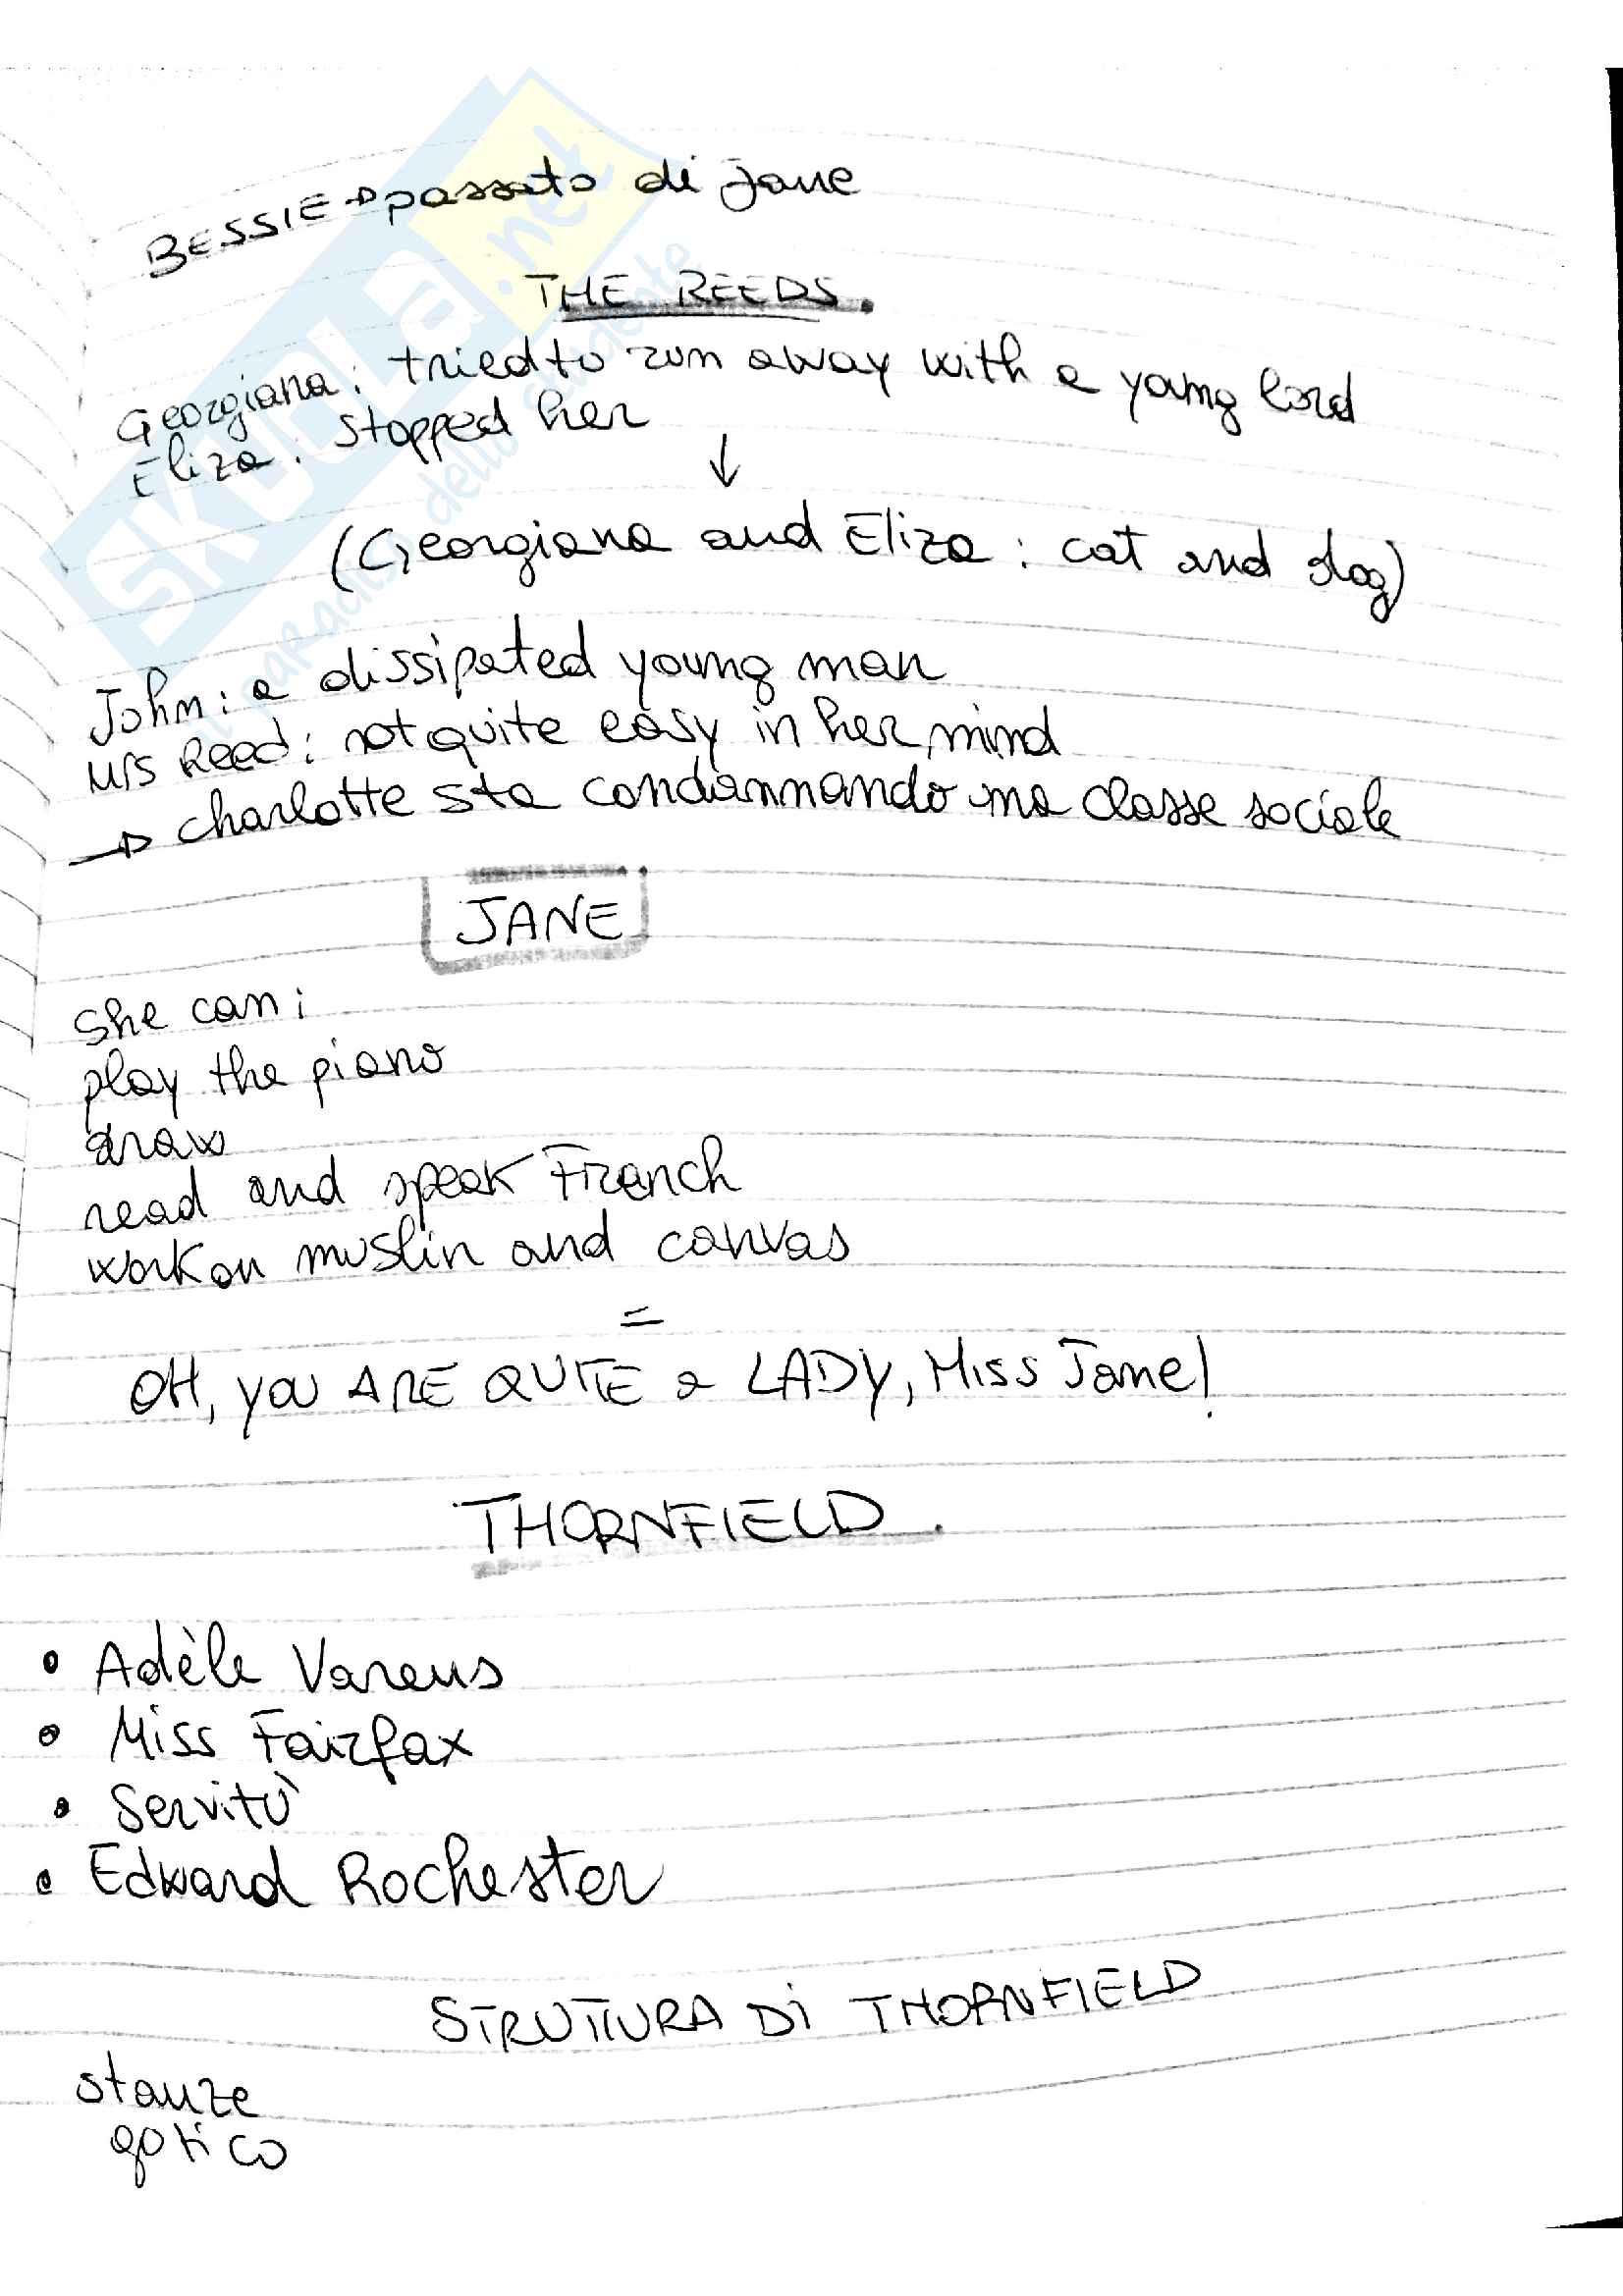 BESSIE → passato di Jane
THE REEDS.
Georgiana: tried to run away with a young lord
Eliza: stopped her
↓
(Georgiana and Eliza: cat and dog)
John: a dissipated young man
Mrs Reed: not quite easy in her mind
→ Charlotte sta condannando una classe sociale
JANE
She can:
play the piano
draw
read and speak French
work on muslin and canvas
=
OH, you ARE QUITE a LADY, Miss Jane!
THORNFIELD.
• Adèle Varens
• Miss Fairfax
• Servitù
• Edward Rochester
STRUTTURA DI THORNFIELD
stanze
gotico
SKUOLA.net
il paradiso dello studente